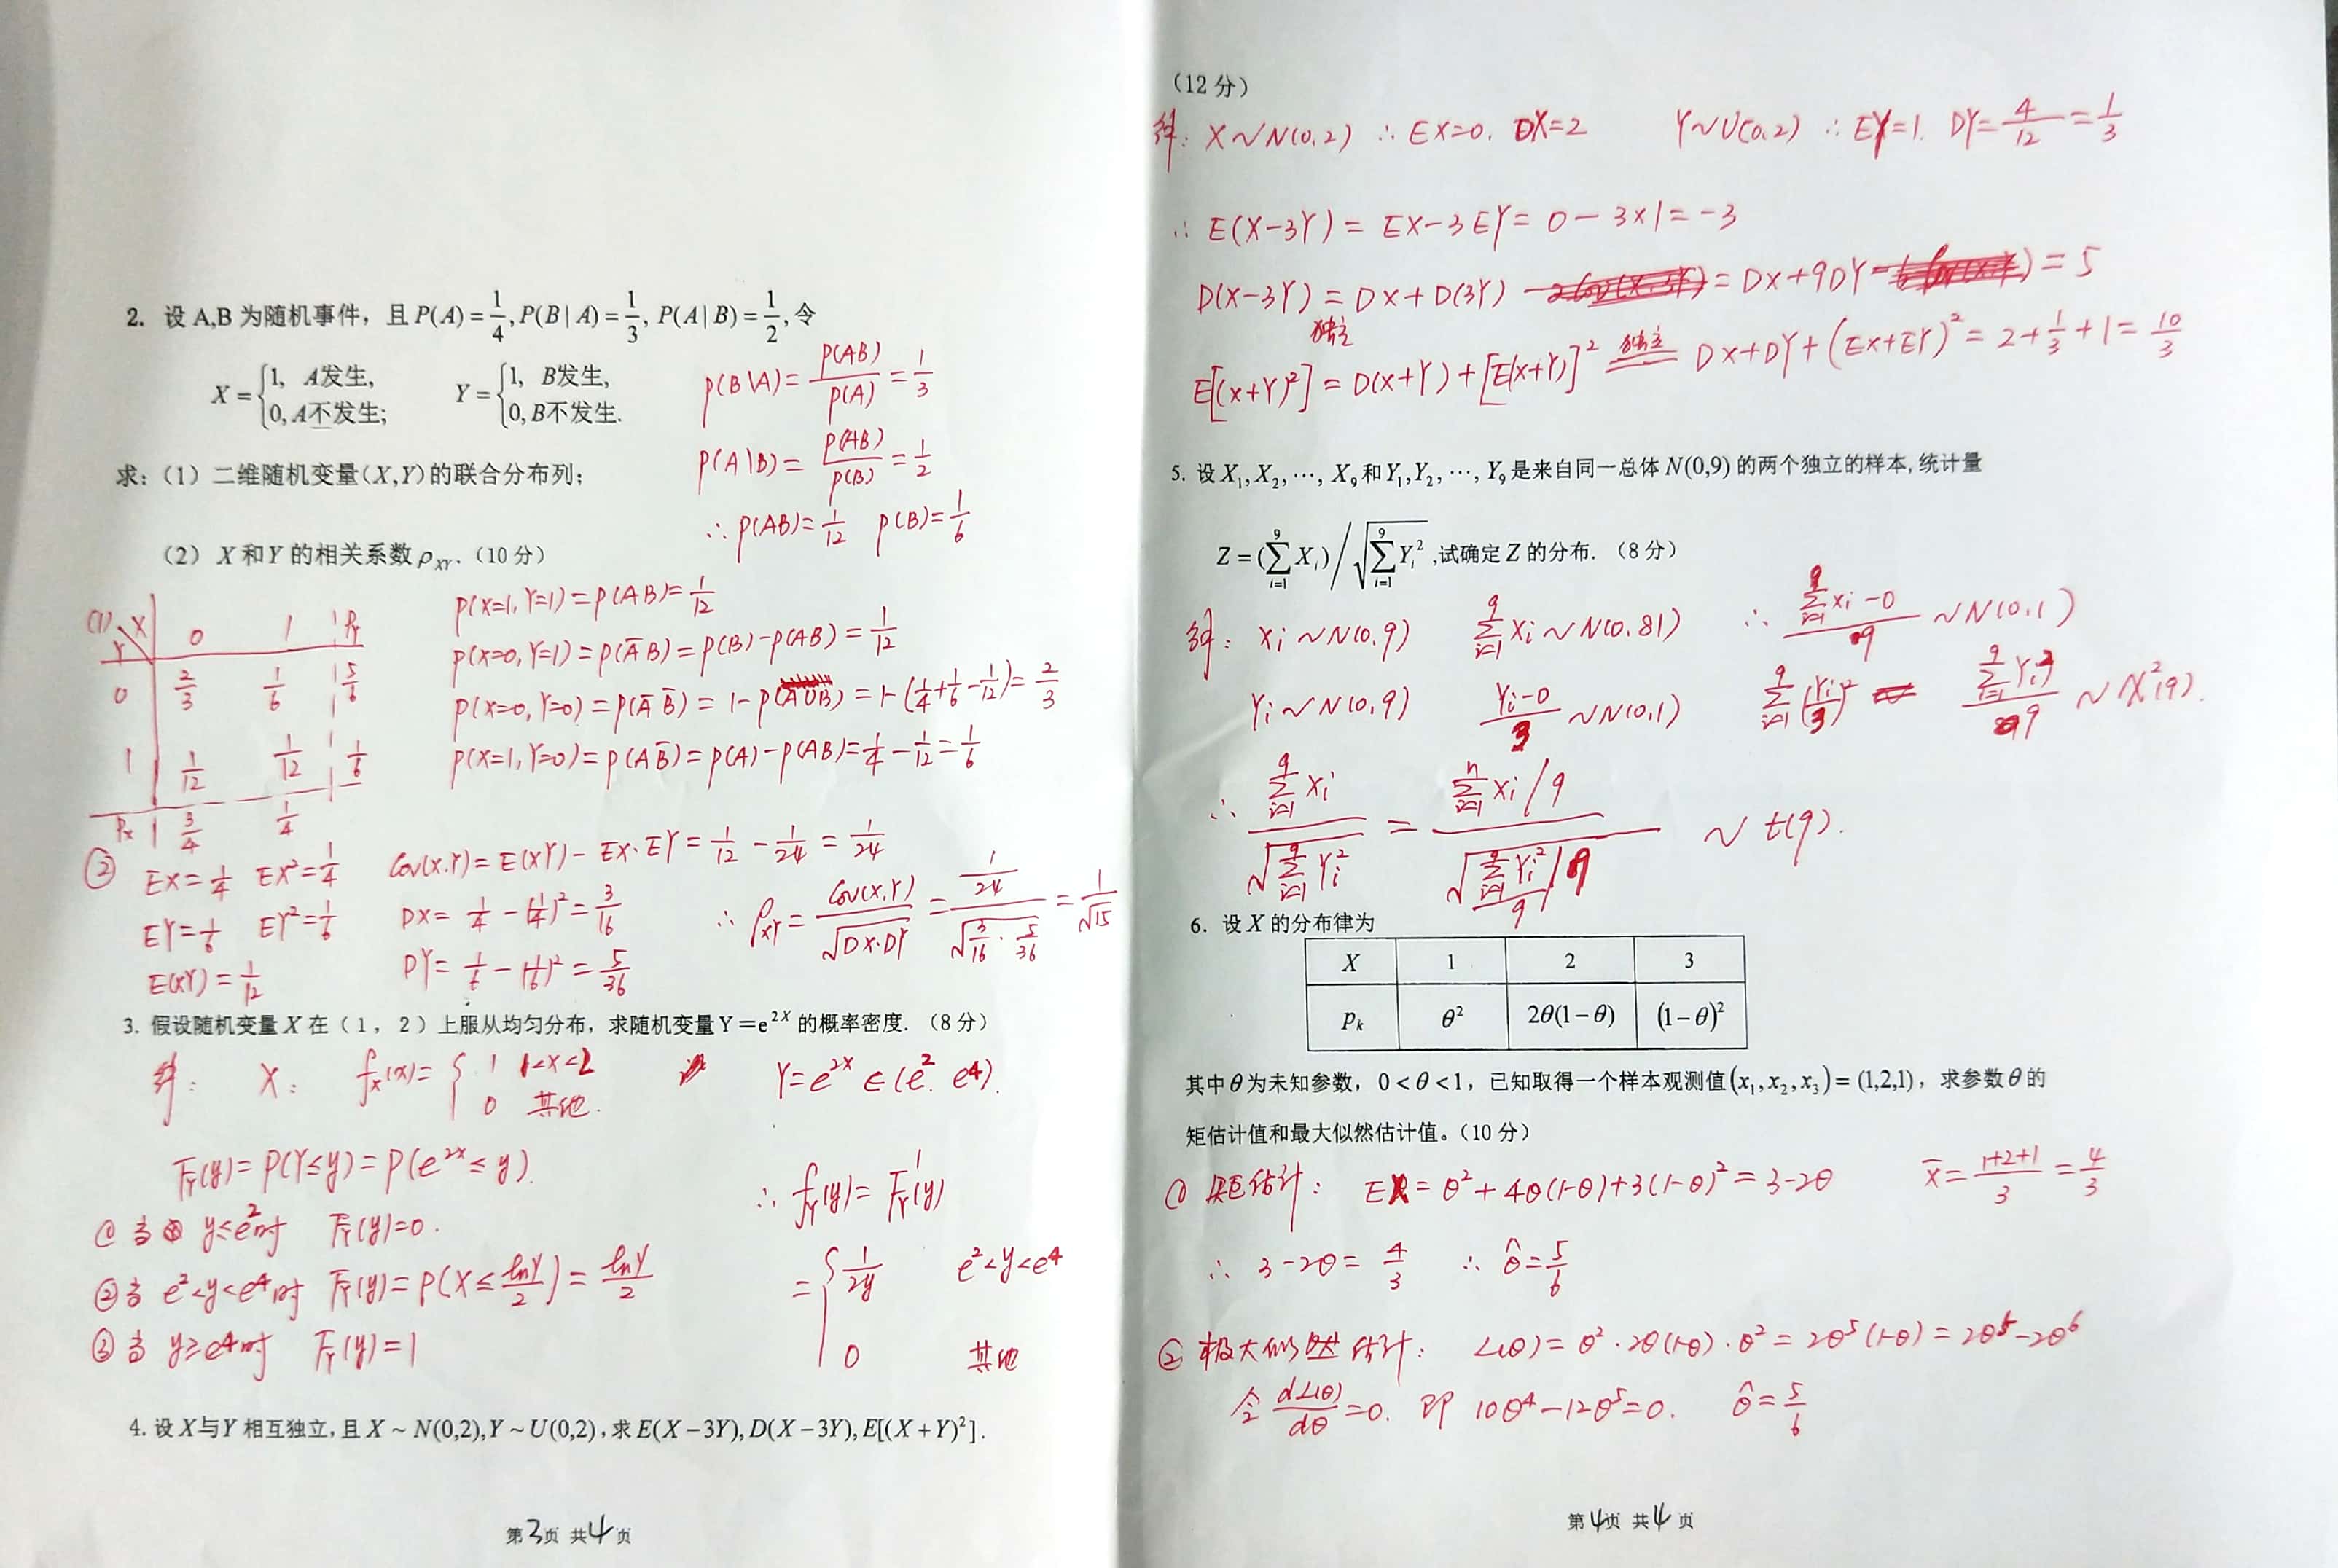 2. 设A,B为随机事件，且P(A)=1/4,P(B|A)=1/3, P(A|B)=1/2,令
X={1, A发生, 0, A不发生; Y={1, B发生, 0, B不发生.
P(B\A)=P(AB)/P(A)=1/3
求：（1）二维随机变量(X,Y)的联合分布列；
P(A\B)=P(AB)/P(B)=1/2
∴P(AB)=1/12 P(B)=1/6
（2）X和Y的相关系数ρXY.（10分）
(1) X 0 1 PY
Y
0 2/3 1/6 5/6
1 1/12 1/12 1/6
PX 3/4 1/4
P(X=1,Y=1)=P(AB)=1/12
P(X=0,Y=1)=P(A̅B)=P(B)-P(AB)=1/12
P(X=0,Y=0)=P(A̅ B̅)=1-P(AUB)=1-(1/4+1/6-1/12)=2/3
P(X=1,Y=0)=P(AB̅)=P(A)-P(AB)=1/4-1/12=1/6
② EX=1/4 EX²=1/4 Cov(X,Y)=E(XY)-EX·EY=1/12-1/24=1/24
EY=1/6 EY²=1/6 DX=1/4-(1/4)²=3/16 ∴ρXY=Cov(X,Y)/√DX·DY=1/24/√3/16·5/36=1/√15
E(XY)=1/12 DY=1/6-(1/6)²=5/36
3. 假设随机变量X在（1，2）上服从均匀分布，求随机变量Y=e²ˣ的概率密度.（8分）
解： X： fX(x)={1 1<x<2 0 其他. Y=e²ˣ∈(e², e⁴).
FY(y)=P(Y≤y)=P(e²ˣ≤y).
①当 y≤e²时 FY(y)=0.
②当 e²<y<e⁴时 FY(y)=P(X≤lnY/2)=lnY/2
③当 y≥e⁴时 FY(y)=1
∴fY(y)=F'Y(y)
={1/2y e²<y<e⁴
0 其他
4. 设X与Y相互独立,且X~N(0,2),Y~U(0,2),求E(X-3Y),D(X-3Y),E[(X+Y)²].
第3页 共4页
（12分）
解：X~N(0,2) ∴EX=0. DX=2 Y~U(0,2) ∴EY=1. DY=4/12=1/3
∴E(X-3Y)=EX-3EY=0-3×1=-3
D(X-3Y)=DX+D(3Y)=DX+9DY=5
独立
E[(X+Y)²]=D(X+Y)+[E(X+Y)]² 独立 DX+DY+(EX+EY)²=2+1/3+1=10/3
5. 设X₁,X₂,⋯, X₉和Y₁,Y₂,⋯, Y₉是来自同一总体N(0,9)的两个独立的样本,统计量
Z=(∑ᵢ₌₁⁹Xᵢ)/√∑ᵢ₌₁⁹Yᵢ²,试确定Z的分布.（8分）
解：Xi~N(0,9) ∑ᵢ₌₁⁹Xi~N(0,81) ∴(∑ᵢ₌₁⁹Xi-0)/9~N(0,1)
Yi~N(0,9) (Yi-0)/3~N(0,1) ∑ᵢ₌₁⁹(Yi/3)² = ∑ᵢ₌₁⁹Yi²/9~χ²(9).
∴∑ᵢ₌₁⁹Xi/√∑ᵢ₌₁⁹Yi² = (∑ᵢ₌₁ⁿXi/9)/√(∑ᵢ₌₁⁹Yi²/9)/9 ~t(9).
6. 设X的分布律为
X 1 2 3
pk θ² 2θ(1-θ) (1-θ)²
其中θ为未知参数，0<θ<1，已知取得一个样本观测值(x₁,x₂,x₃)=(1,2,1)，求参数θ的
矩估计值和最大似然估计值。（10分）
①矩估计：EX=θ²+4θ(1-θ)+3(1-θ)²=3-2θ x̅=1+2+1/3=4/3
∴3-2θ=4/3 ∴θ̂=5/6
②极大似然估计：L(θ)=θ²·2θ(1-θ)·θ²=2θ⁵(1-θ)=2θ⁵-2θ⁶
令dL(θ)/dθ=0. 即 10θ⁴-12θ⁵=0. θ̂=5/6
第4页 共4页